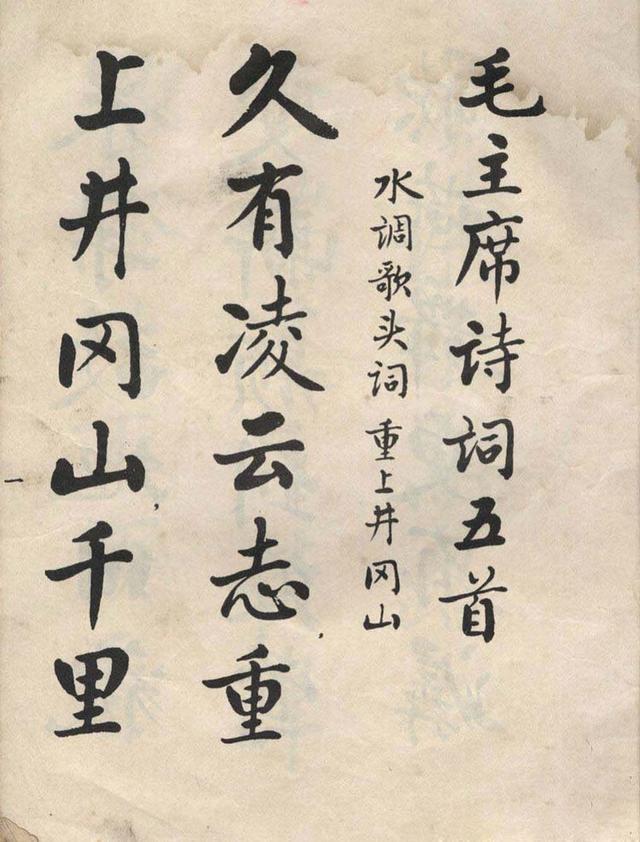 毛主席诗词五首
水调歌头词 重上井冈山
久有凌云志,重
上井冈山,千里
一